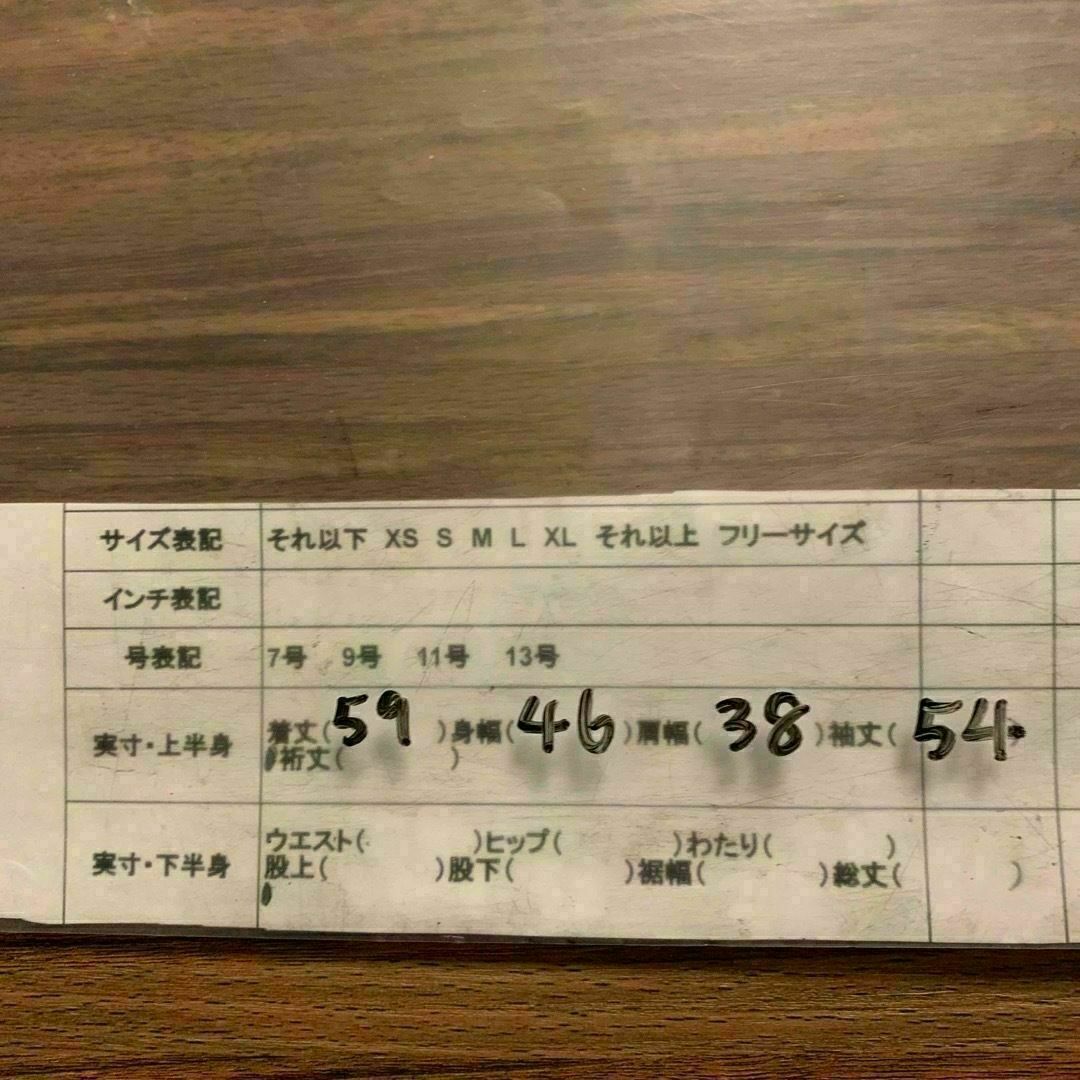 サイズ表記 それ以下 XS S M L XL それ以上 フリーサイズ
インチ表記
号表記 7号 9号 11号 13号
実寸・上半身 着丈(59)身幅(46)肩幅(38)袖丈(54)
裄丈( )
実寸・下半身 ウエスト( )ヒップ( )わたり( )
股上( )股下( )裾幅( )総丈( )